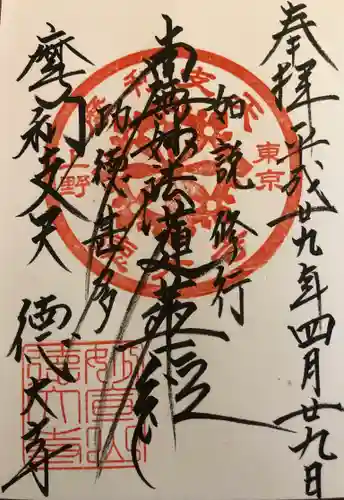 奉拝 平成廿九年四月廿九日
如説修行
南無妙法蓮華経
功徳甚多
摩利支天
徳大寺
東京
上野